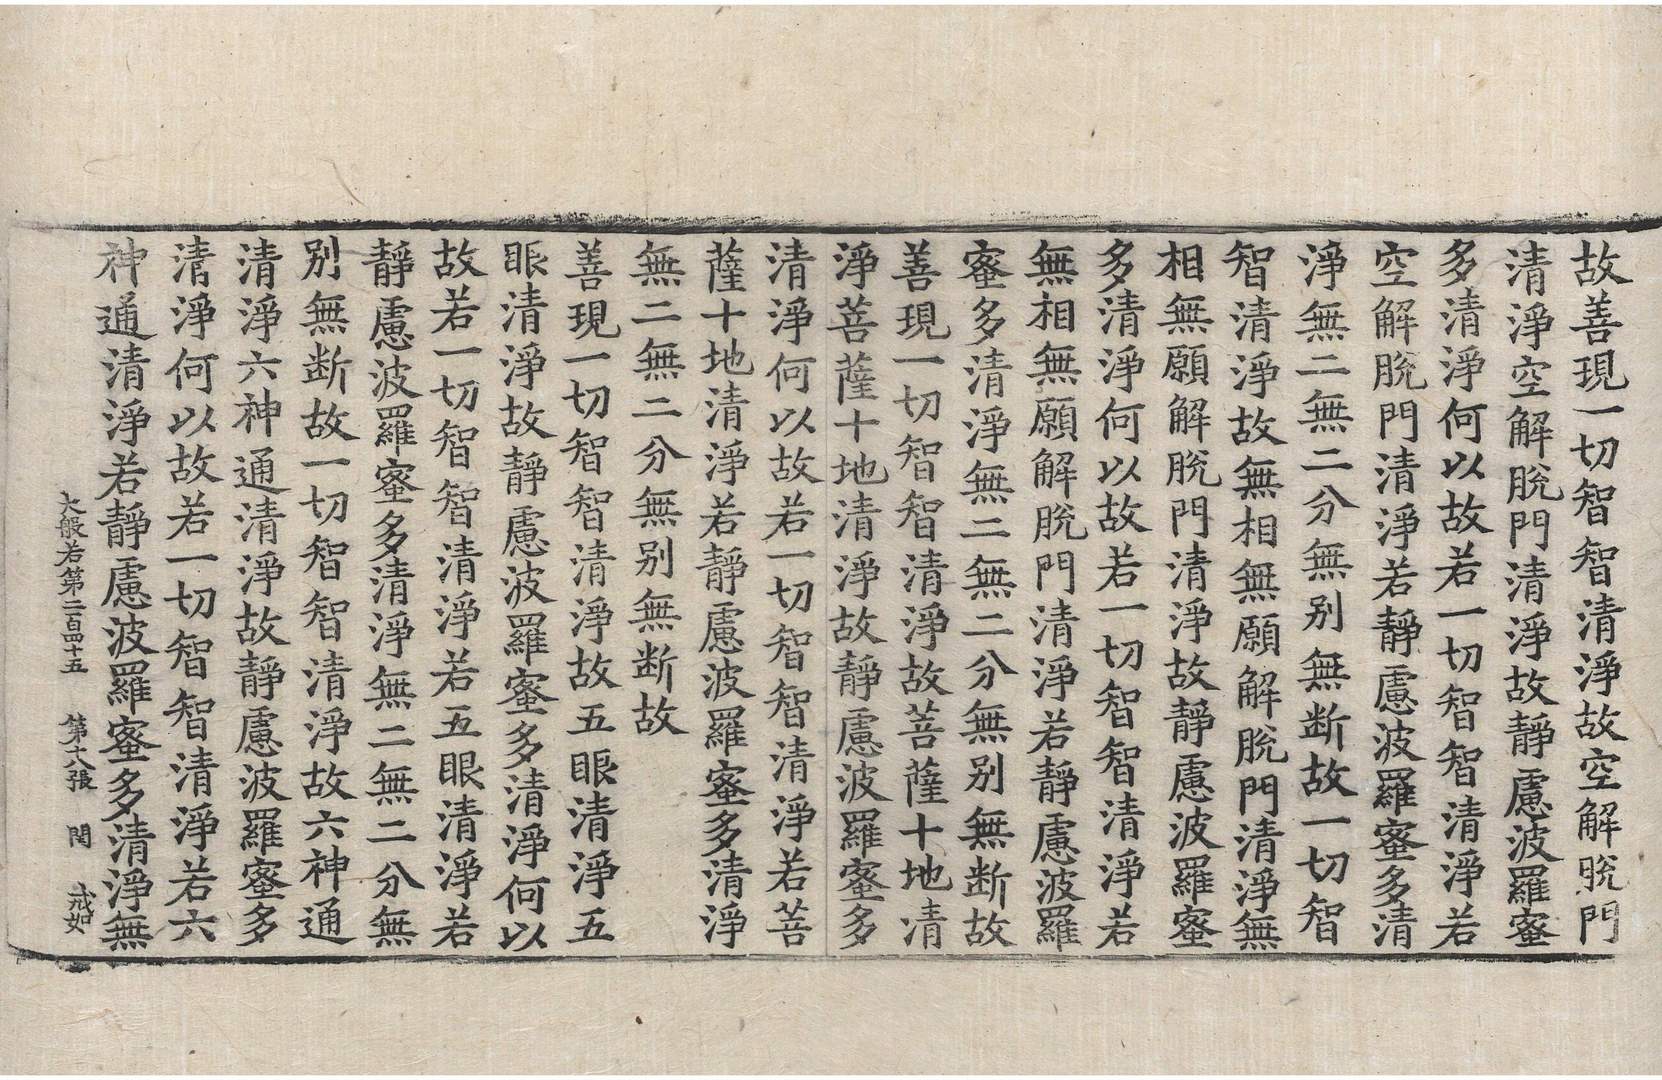 故善現一切智智清淨故空解脫門
清淨空解脫門清淨故靜慮波羅蜜
多清淨何以故若一切智智清淨若
空解脫門清淨若靜慮波羅蜜多清
淨無二無二分無別無斷故一切智
智清淨故無相無願解脫門清淨無
相無願解脫門清淨故靜慮波羅蜜
多清淨何以故若一切智智清淨若
無相無願解脫門清淨若靜慮波羅
蜜多清淨無二無二分無別無斷故
善現一切智智清淨故菩薩十地清
淨菩薩十地清淨故靜慮波羅蜜多
清淨何以故若一切智智清淨若菩
薩十地清淨若靜慮波羅蜜多清淨
無二無二分無別無斷故
善現一切智智清淨故五眼清淨五
眼清淨故靜慮波羅蜜多清淨何以
故若一切智智清淨若五眼清淨若
靜慮波羅蜜多清淨無二無二分無
別無断故一切智智清淨故六神通
清淨六神通清淨故靜慮波羅蜜多
清淨何以故若一切智智清淨若六
神通清淨若靜慮波羅蜜多清淨無
大般若第二百四十五 第十八張 閏 戒如